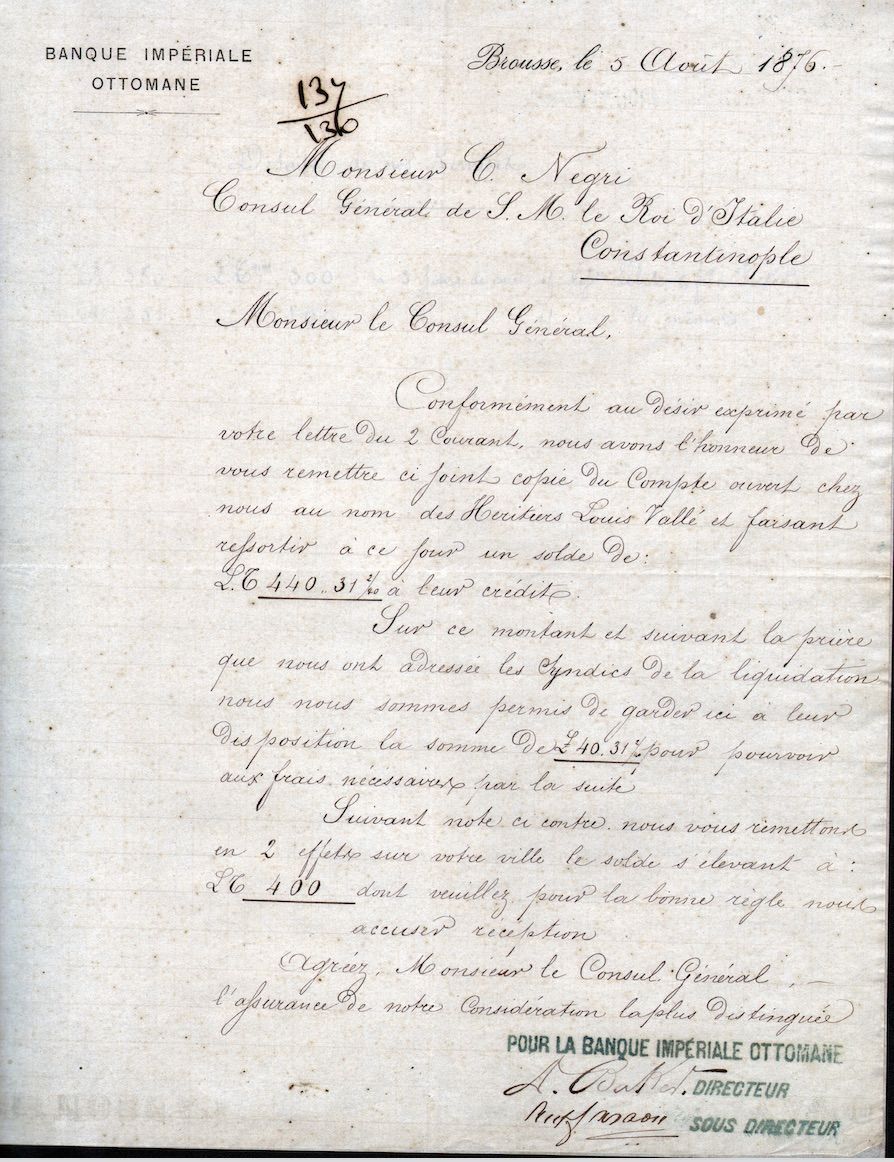 BANQUE IMPÉRIALE
OTTOMANE
Brousse, le 5 Août 1876.-
137
136
Monsieur C. Negri
Consul Général de S. M. le Roi d'Italie
Constantinople
Monsieur le Consul Général,
Conformément au désir exprimé par
votre lettre du 2 Courant, nous avons l'honneur de
vous remettre ci joint copie du Compte ouvert chez
nous au nom des Heritiers Louis Vallé et faisant
ressortir à ce jour un solde de:
L.T 440.. 31 à leur crédit.
Sur ce montant et suivant la prière
que nous ont adressée les Syndics de la liquidation
nous nous sommes permis de garder ici à leur
disposition la somme de £ 40.31 pour pourvoir
aux frais nécessaires par la suite
Suivant note ci contre nous vous remettons
en 2 effets sur votre ville le solde s'élevant à:
LT 400 dont veuillez pour la bonne règle nous
accuser réception
Agréez, Monsieur le Consul Général, -
l'assurance de notre Considération la plus distinguée
POUR LA BANQUE IMPÉRIALE OTTOMANE
DIRECTEUR
SOUS DIRECTEUR